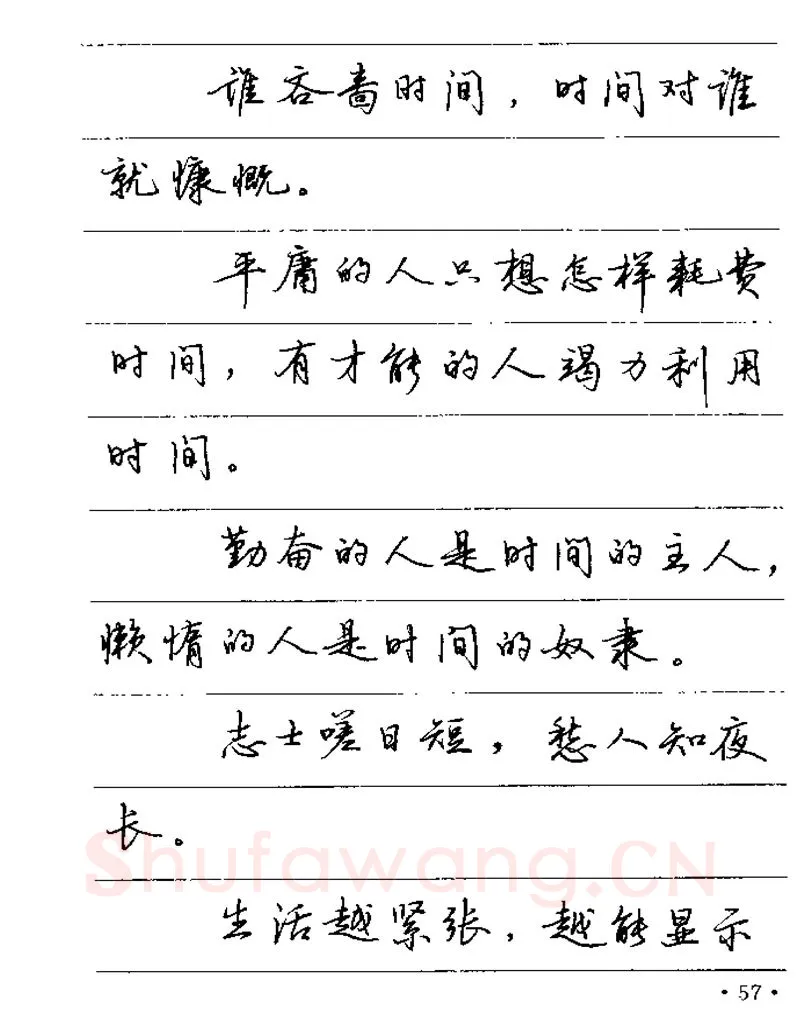 谁吝啬时间，时间对谁
就慷慨。
平庸的人只想怎样耗费
时间，有才能的人竭力利用
时间。
勤奋的人是时间的主人，
懒惰的人是时间的奴隶。
志士嗟日短，愁人知夜
长。
Shufawang.CN
生活越紧张，越能显示
·57·